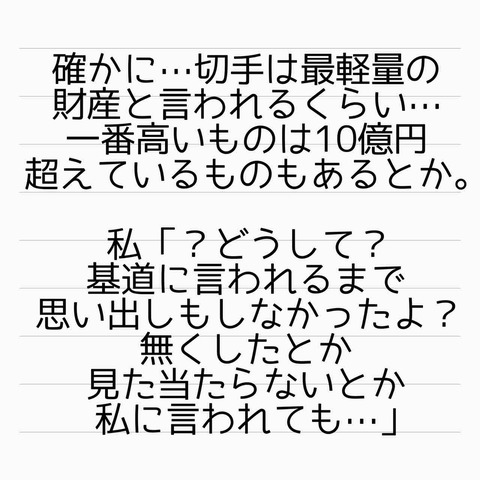 確かに…切手は最軽量の
財産と言われるくらい…
一番高いものは10億円
超えているものもあるとか。
私「？どうして？
基道に言われるまで
思い出しもしなかったよ？
無くしたとか
見た当たらないとか
私に言われても…」